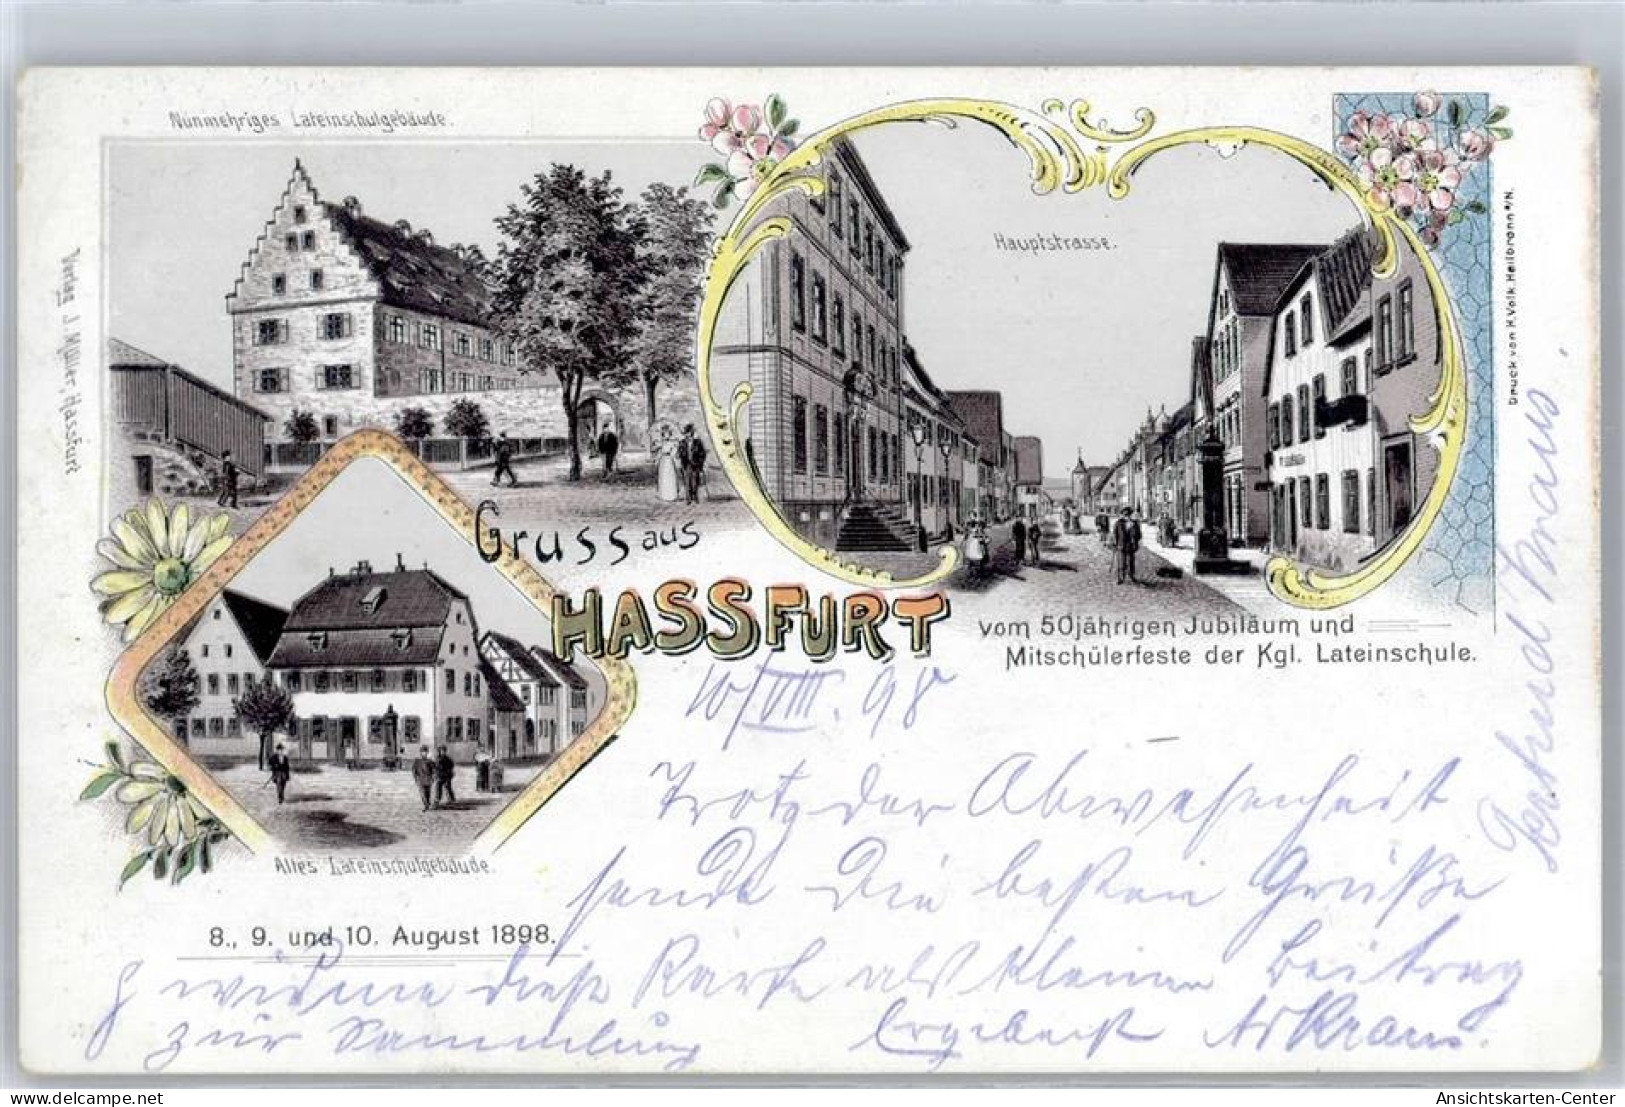 Nunmehriges Lateinschulgebäude.
Hauptstrasse.
Verlag J. Müller, Hassfurt
Druck von H. Volk, Heilbronn a/N.
Gruss aus
HASSFURT
vom 50jährigen Jubiläum und
Mitschülerfeste der Kgl. Lateinschule.
Altes Lateinschulgebäude.
8., 9. und 10. August 1898.
10/VIII. 98
Trotz der Abwesenheit
sende Die besten Grüße
& widme diese Karte als kleinen Beitrag
zur Sammlung Ergebenst Kraus.
Kraus